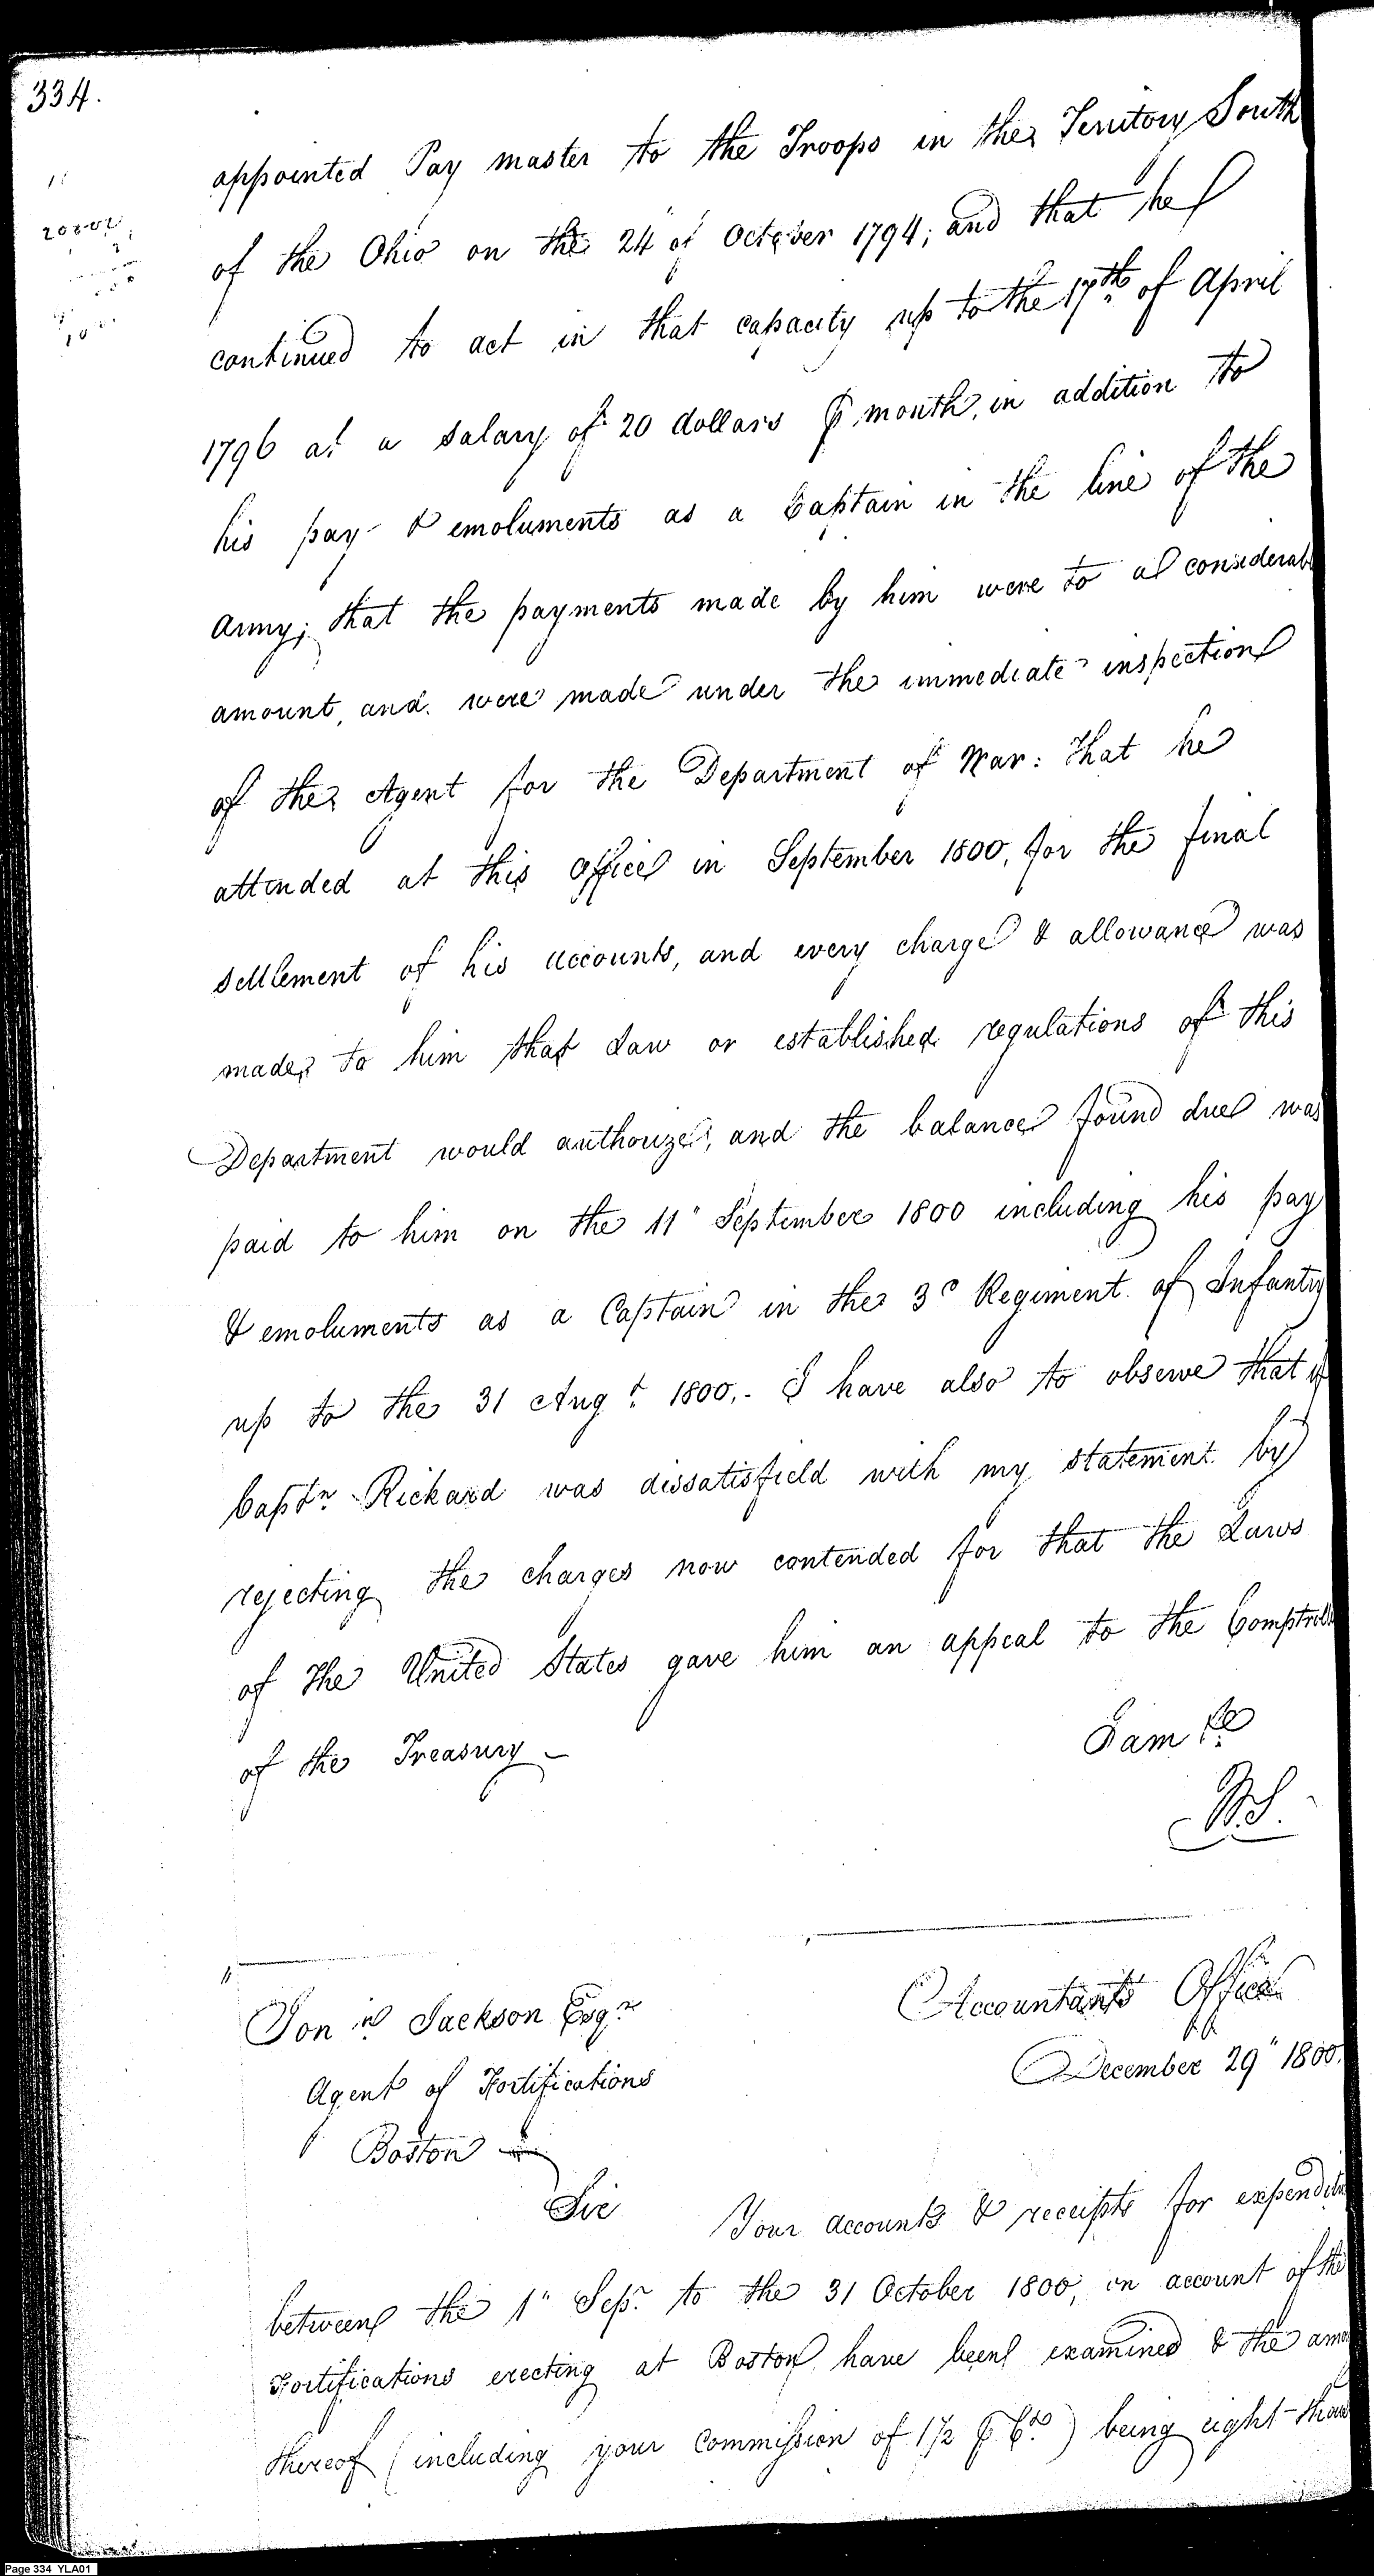 334.
appointed Pay master to the Troops in the Territory South
of the Ohio on the 24" of October 1794; and that he
continued to act in that capacity up to the 17th of April
1796 at a salary of 20 dollars ⅌ month, in addition to
his pay & emoluments as a Captain in the line of the
Army; that the payments made by him were to a considerabl
amount, and were made under the immediate inspection
of the Agent for the Department of War: that he
attended at this Office in September 1800, for the final
settlement of his accounts, and every charge & allowance was
made to him that Law or established regulations of this
Department would authorize, and the balance found due was
paid to him on the 11" September 1800 including his pay
& emoluments as a Captain in the 3d Regiment of Infantry
up to the 31 Augt 1800.- I have also to observe that if
Captn Rickard was dissatisfield with my statement by
rejecting the charges now contended for that the Laws
of the United States gave him an appeal to the Comptroll
of the Treasury -
I am &c
W.S.
Accountants Office
December 29" 1800.
Jonn Jackson Esqr
Agent of Fortifications
Boston
Sir Your accounts & receipts for expenditu
between the 1" Sepr to the 31 October 1800, on account of the
Fortifications erecting at Boston have been examined & the amo
thereof (including your Commission of 1½ ⅌ Ct) being eight-thou
Page 334 YLA01